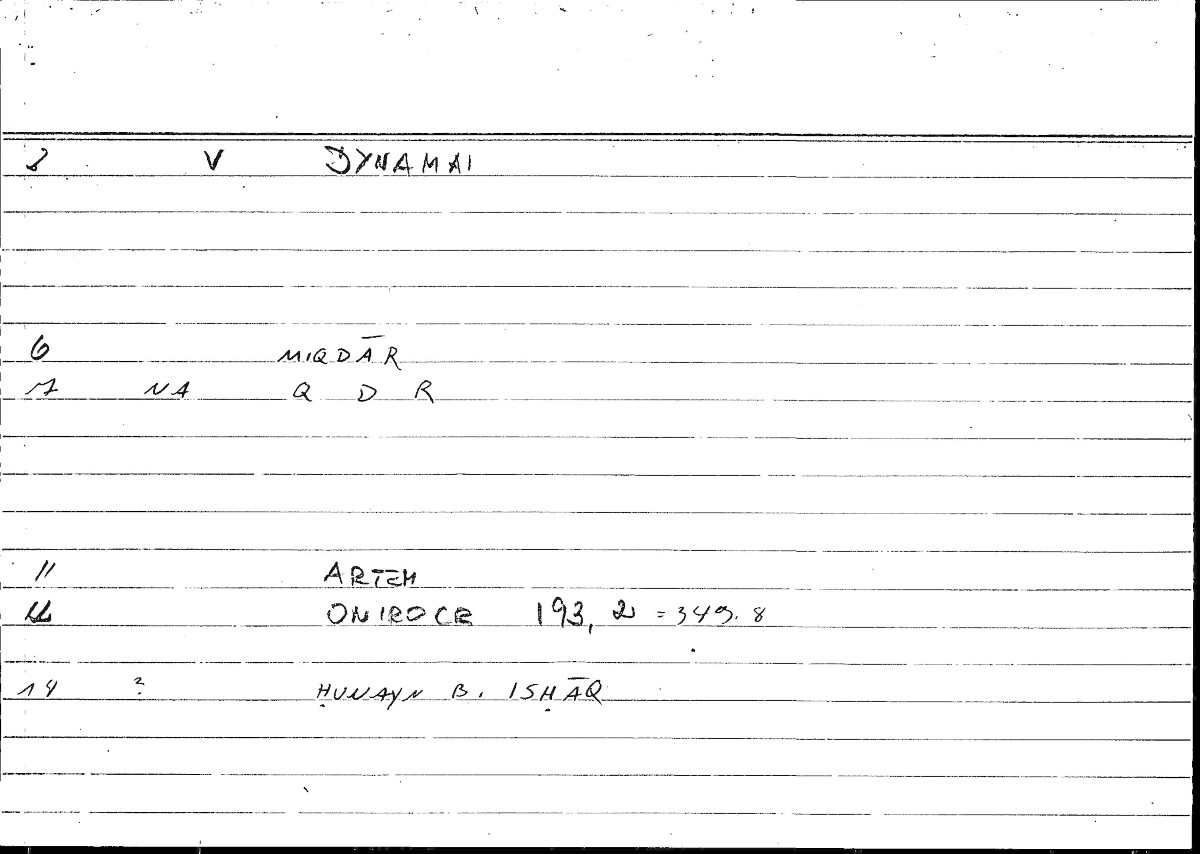 2 V DYNAMAI
6 MIQDĀR
7 NA Q D R
11 ARTEM
12 ONIROCR 193, 2 = 349.8
14 ? ḤUNAYN B. ISḤĀQ